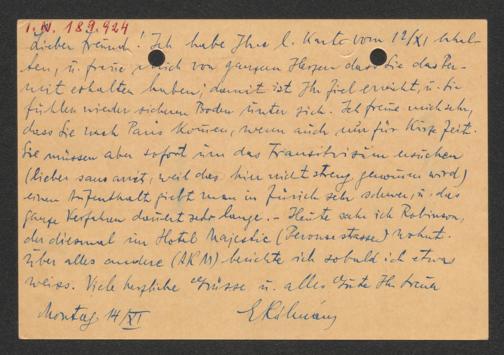 I. N. 189.424
Lieber Freund! Ich habe Ihre l. Karte vom 12/XI erhal-
ten, u. freue mich von ganzem Herzen dass Sie das Per-
mit erhalten haben; damit ist Ihr Ziel erreicht, u. Sie
fühlen wieder sicheren Boden unter sich. Ich freue mich sehr,
dass Sie nach Paris kommen, wenn auch nur für kurze Zeit.
Sie müssen aber sofort um das Transitvisum ersuchen
(lieber sans arrêt, weil das hier nicht streng genommen wird)
einen Aufenthalt giebt man in Zürich sehr schwer, u. das
ganze Verfahren dauert sehr lange. - Heute sah ich Robinson,
der diesmal im Hotel Majestic (Perousestrasse) wohnt.
Über alles andere (AKM) berichte ich sobald ich etwas
weiss. Viele herzliche Grüsse u. alles Gute Ihr treuer
Montag 14/XI EKálmán